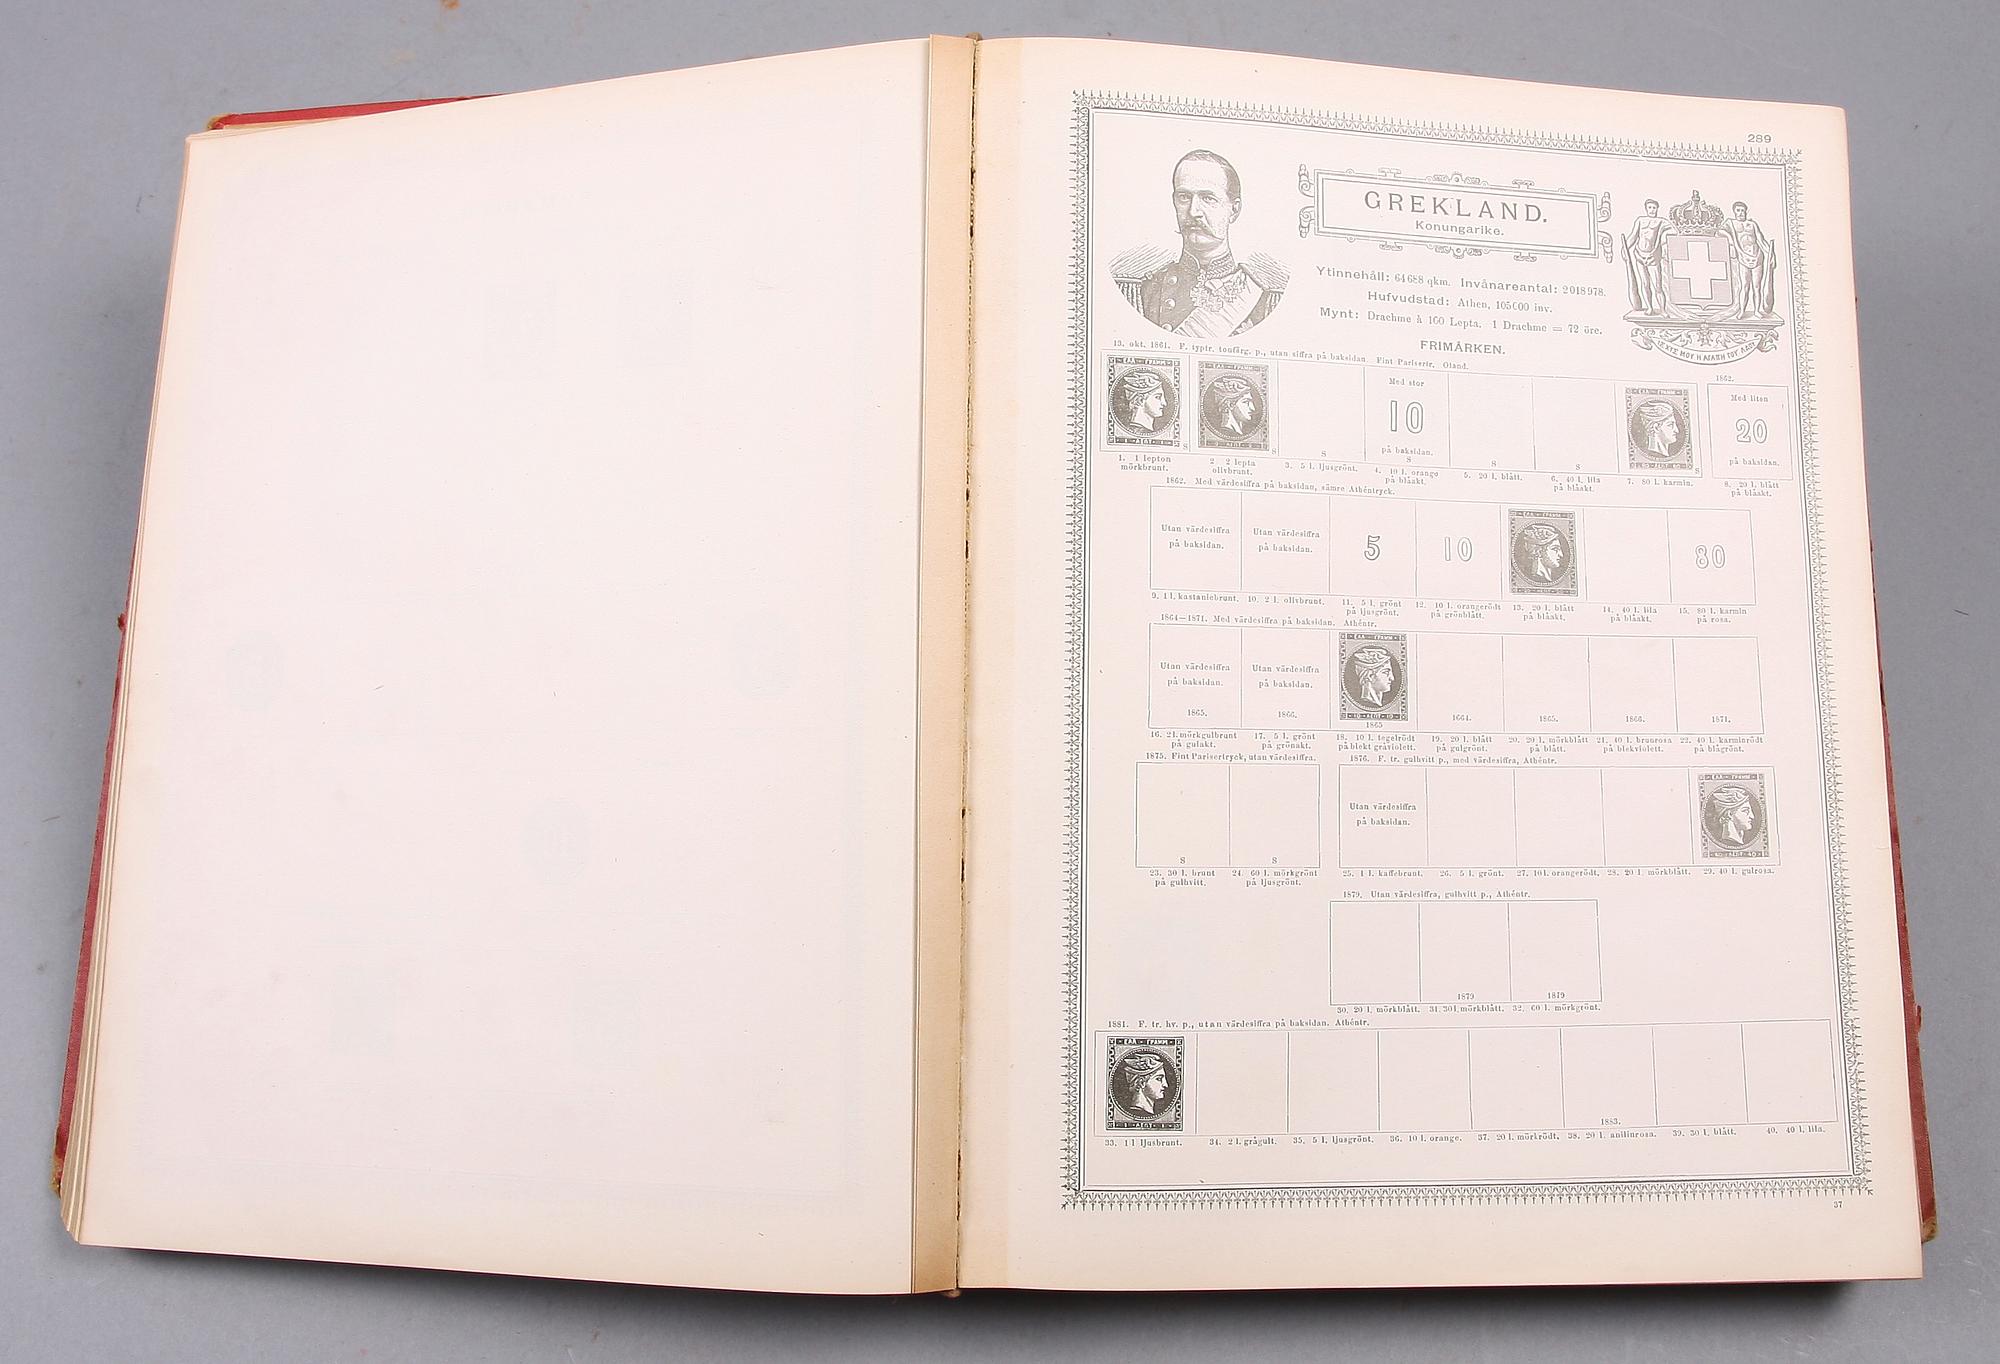 289
GREKLAND.
Konungarike.
Ytinnehåll: 64688 qkm. Invånareantal: 2018978.
Hufvudstad: Athen, 105000 inv.
Mynt: Drachme à 100 Lepta. 1 Drachme = 72 öre.
FRIMÄRKEN.
13. okt. 1861. F. typtr. tonfärg. p., utan siffra på baksidan. Fint Parisertr. Otand.
1862.
ΕΛΛ ΓΡΑΜΜ
1 ΛΕΠΤ 1
S
ΕΛΛ ΓΡΑΜΜ
S
S
Med stor
10
på baksidan.
S
S
S
ΕΛΛ ΓΡΑΜΜ
80 ΛΕΠΤ 80
S
Med liten
20
på baksidan.
1. 1 lepton
mörkbrunt.
2 2 lepta
olivbrunt.
3. 5 l. ljusgrönt.
4. 10 l. orange
på blåakt.
5. 20 l. blått.
6. 40 l. lila
på blåakt.
7. 80 l. karmin.
8. 20 l. blått
på blåakt.
1862. Med värdesiffra på baksidan, sämre Athéntryck.
Utan värdesiffra
på baksidan.
Utan värdesiffra
på baksidan.
5
10
80
9. 1 l. kastaniebrunt.
10. 2 l. olivbrunt.
11. 5 l. grönt
på ljusgrönt.
12. 10 l. orangerödt
på grönblått.
13. 20 l. blått
på blåakt.
14. 40 l. lila
på blåakt.
15. 80 l. karmin
på rosa.
1864—1871. Med värdesiffra på baksidan. Athéntr.
Utan värdesiffra
på baksidan.
1865.
Utan värdesiffra
på baksidan.
1866.
ΕΛΛ ΓΡΑΜΜ
10 ΛΕΠΤ 10
1865
1864.
1865.
1866.
1871.
16. 2 l. mörkgulbrunt
på gulakt.
17. 5 l. grönt
på grönakt.
18. 10 l. tegelrödt
på blekt gråviolett.
19. 20 l. blått
på gulgrönt.
20. 20 l. mörkblått
på blått.
21. 40 l. brunrosa
på blekviolett.
22. 40 l. karminrödt
på blågrönt.
1875. Fint Parisertryck, utan värdesiffra.
1876. F. tr. gulhvitt p., med värdesiffra, Athéntr.
S
S
Utan värdesiffra
på baksidan.
ΕΛΛ ΓΡΑΜΜ
40 ΛΕΠΤ 40
23. 30 l. brunt
på gulhvitt.
24. 60 l. mörkgrönt
på ljusgrönt.
25. 1 l. kaffebrunt.
26. 5 l. grönt.
27. 10 l. orangerödt.
28. 20 l. mörkblått.
29. 40 l. gulrosa.
1879. Utan värdesiffra, gulhvitt p., Athéntr.
1879
1879
30. 20 l. mörkblått.
31. 30 l. mörkblått.
32. 60 l. mörkgrönt.
1881. F. tr. hv. p., utan värdesiffra på baksidan. Athéntr.
ΕΛΛ ΓΡΑΜΜ
1 ΛΕΠΤ 1
1883.
33. 1 l ljusbrunt.
34. 2 l. grågult.
35. 5 l. ljusgrönt.
36. 10 l. orange.
37. 20 l. mörkrödt.
38. 20 l. anilinrosa.
39. 30 l. blått.
40. 40 l. lila.
37